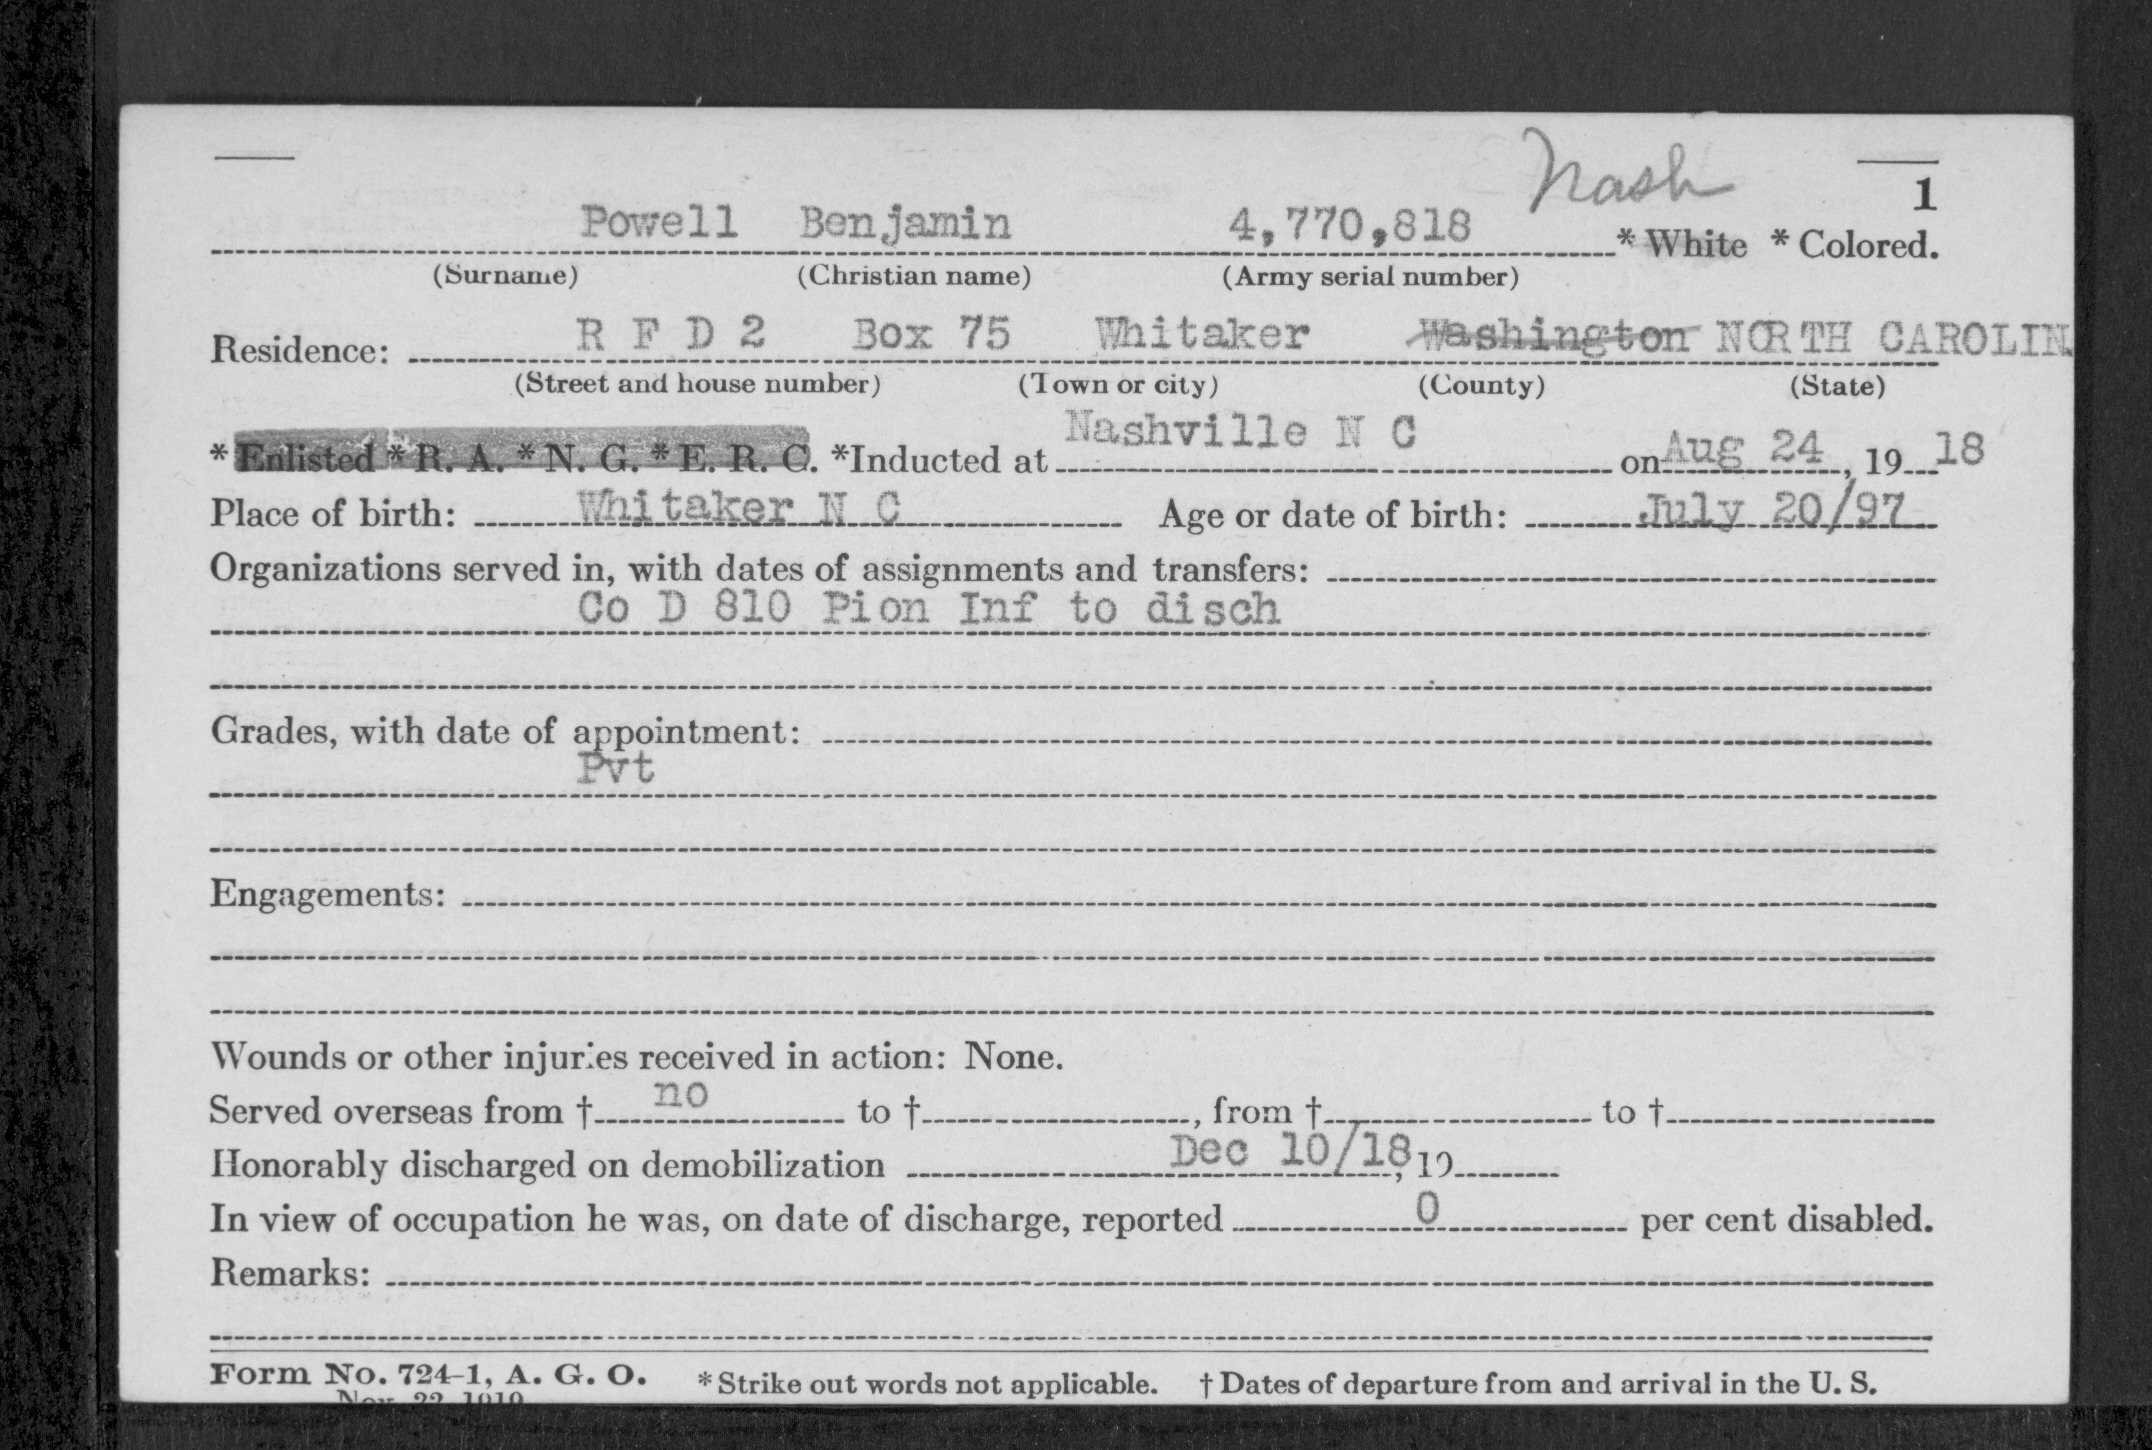 Nash
1
Powell Benjamin 4,770,818 * White * Colored.
(Surname) (Christian name) (Army serial number)
Residence: R F D 2 Box 75 Whitaker Washington NORTH CAROLIN
(Street and house number) (Town or city) (County) (State)
* Enlisted * R. A. * N. G. * E. R. C. *Inducted at Nashville N C on Aug 24, 19 18
Place of birth: Whitaker N C Age or date of birth: July 20/97
Organizations served in, with dates of assignments and transfers:
Co D 810 Pion Inf to disch
Grades, with date of appointment:
Pvt
Engagements:
Wounds or other injuries received in action: None.
Served overseas from † no to †, from † to †
Honorably discharged on demobilization Dec 10/18, 19
In view of occupation he was, on date of discharge, reported 0 per cent disabled.
Remarks:
Form No. 724-1, A. G. O. * Strike out words not applicable. † Dates of departure from and arrival in the U. S.
Nov. 22, 1919